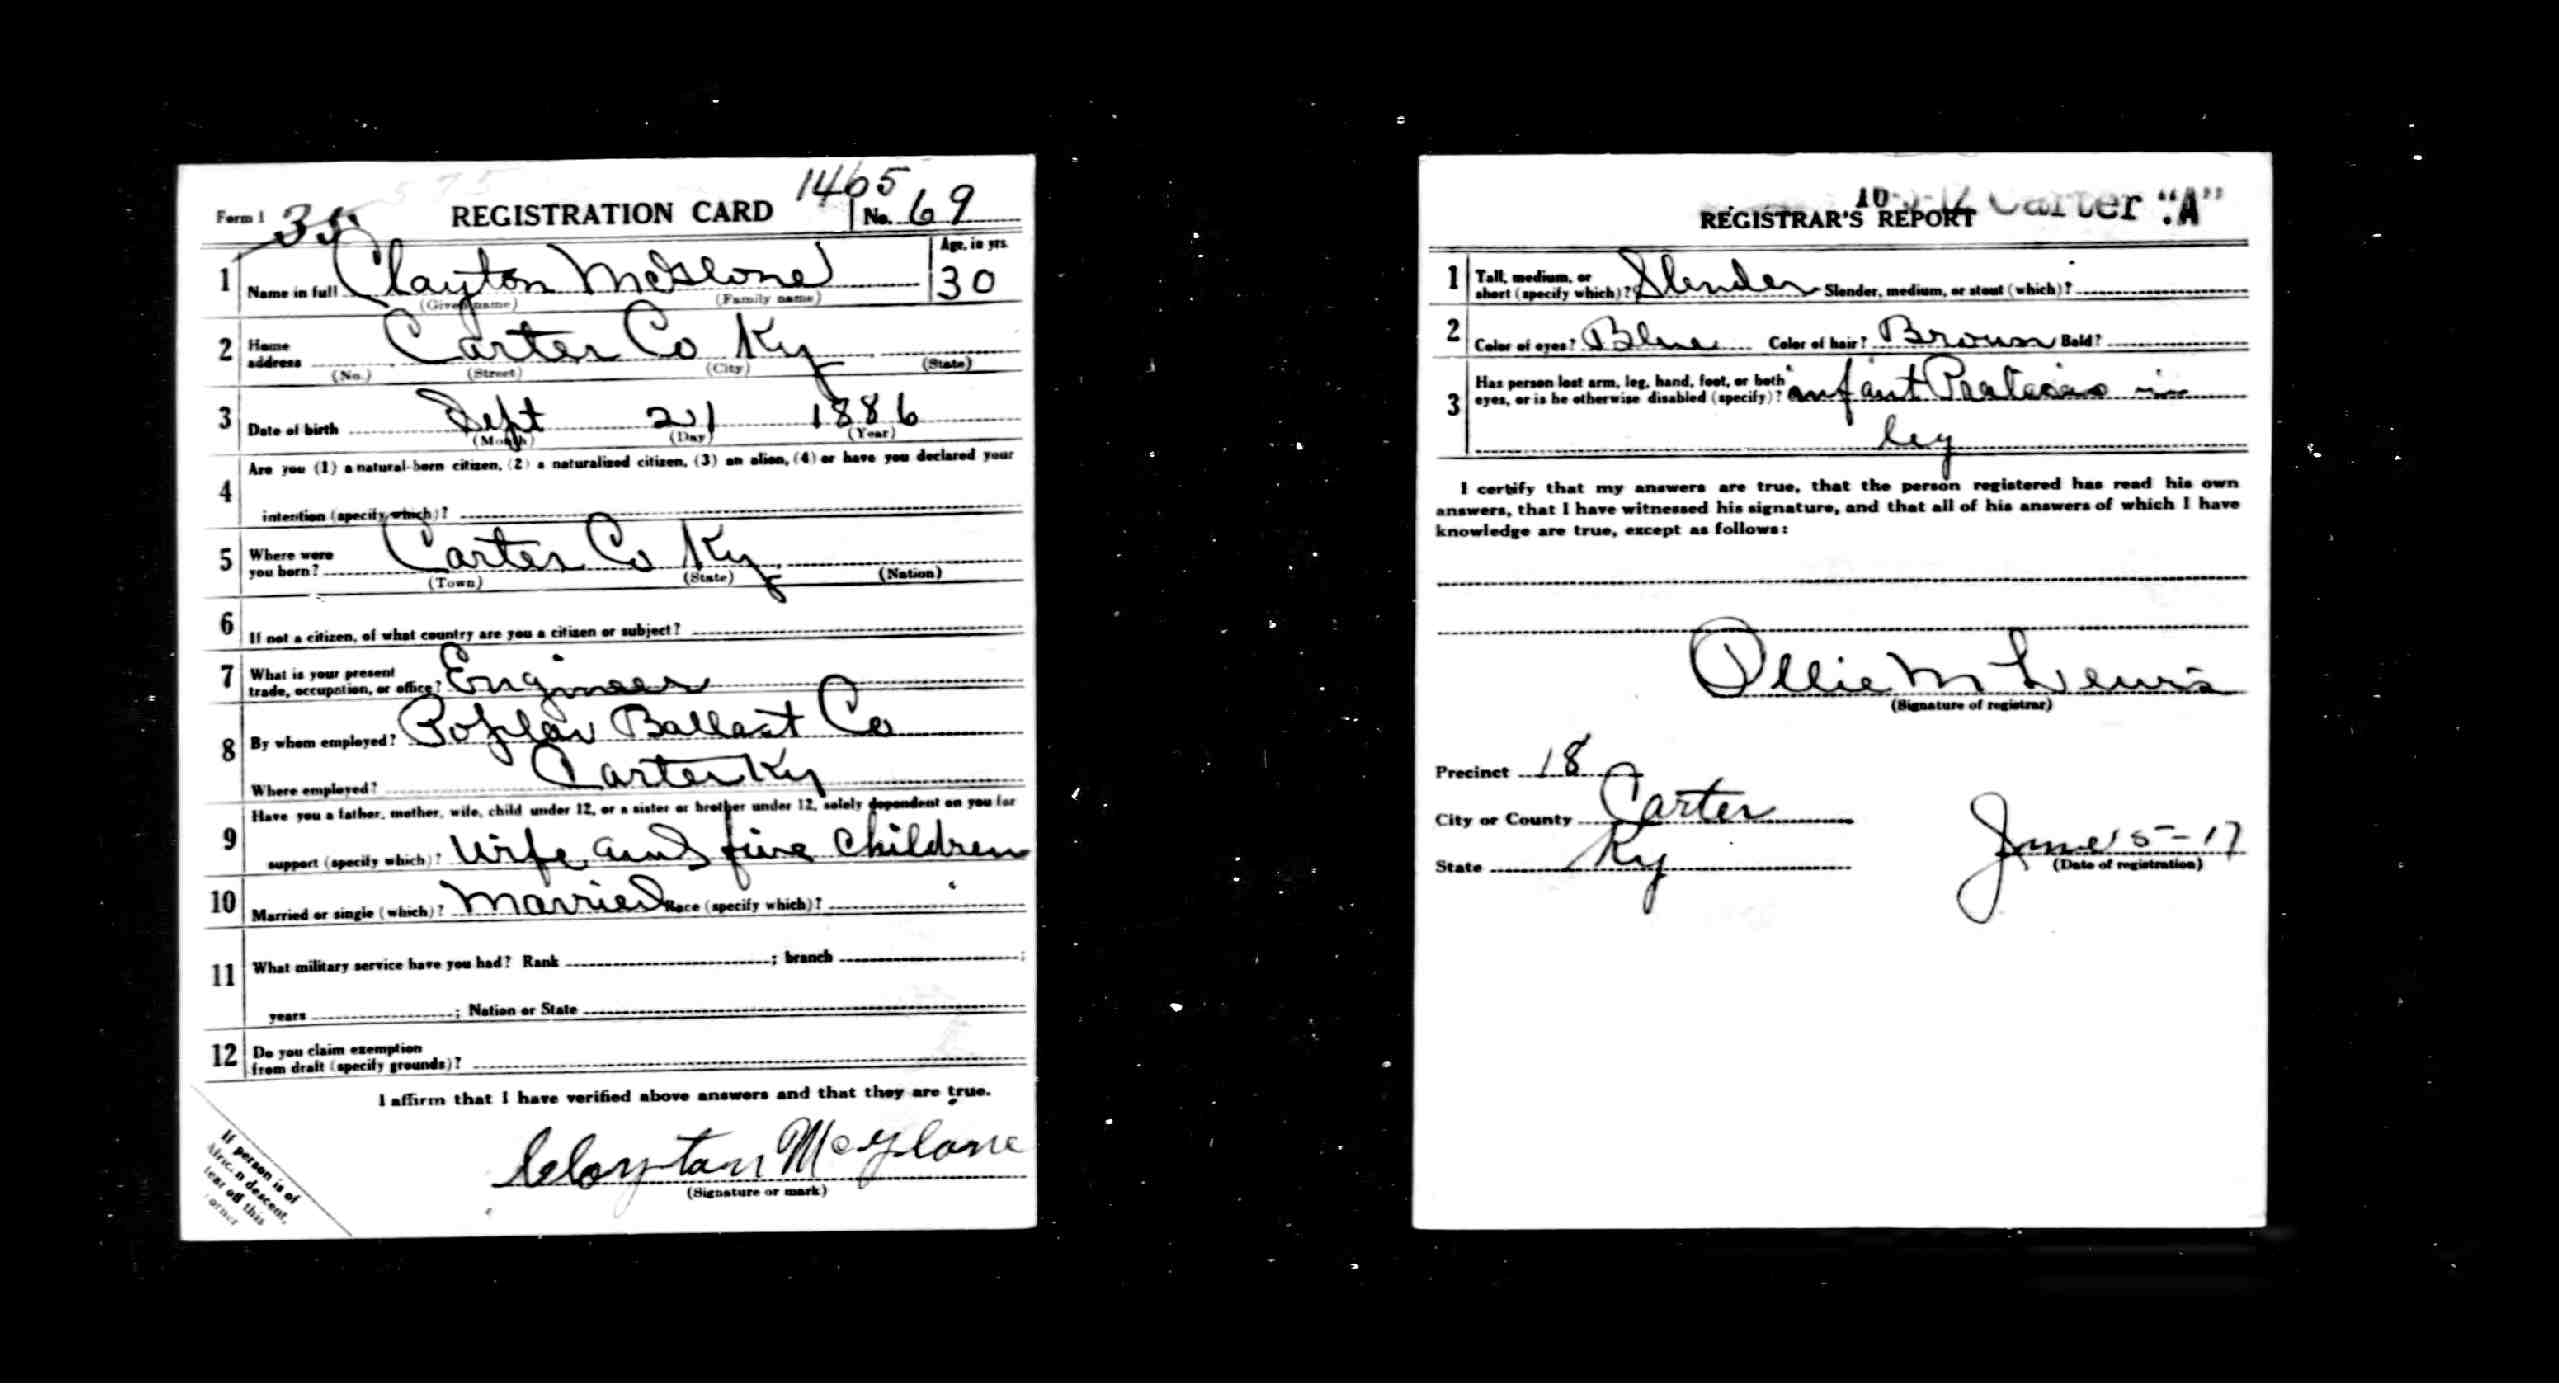 1465
Form 1 35 REGISTRATION CARD No. 69
1 Name in full Clayton McGlone Age, in yrs. 30
(Given name) (Family name)
2 Home address Carter Co Ky
(No.) (Street) (City) (State)
3 Date of birth Sept 21 1886
(Month) (Day) (Year)
4 Are you (1) a natural-born citizen, (2) a naturalized citizen, (3) an alien, (4) or have you declared your
intention (specify which)?
5 Where were you born? Carter Co Ky
(Town) (State) (Nation)
6 If not a citizen, of what country are you a citizen or subject?
7 What is your present trade, occupation, or office? Engineer
8 By whom employed? Poplar Ballast Co
Where employed? Carter Ky
9 Have you a father, mother, wife, child under 12, or a sister or brother under 12, solely dependent on you for
support (specify which)? Wife and five children
10 Married or single (which)? Married Race (specify which)?
11 What military service have you had? Rank ; branch ;
years ; Nation or State
12 Do you claim exemption
from draft (specify grounds)?
I affirm that I have verified above answers and that they are true.
Clayton McGlone
(Signature or mark)
If person is of
African descent,
tear off this
corner
Carter "A"
REGISTRAR'S REPORT
1 Tall, medium, or
short (specify which)? Slender Slender, medium, or stout (which)?
2 Color of eyes? Blue Color of hair? Brown Bald?
3 Has person lost arm, leg, hand, foot, or both
eyes, or is he otherwise disabled (specify)? infant in
leg
I certify that my answers are true, that the person registered has read his own
answers, that I have witnessed his signature, and that all of his answers of which I have
knowledge are true, except as follows:
Ollie M Lewis
(Signature of registrar)
Precinct 18
City or County Carter
State Ky
June 5-17
(Date of registration)